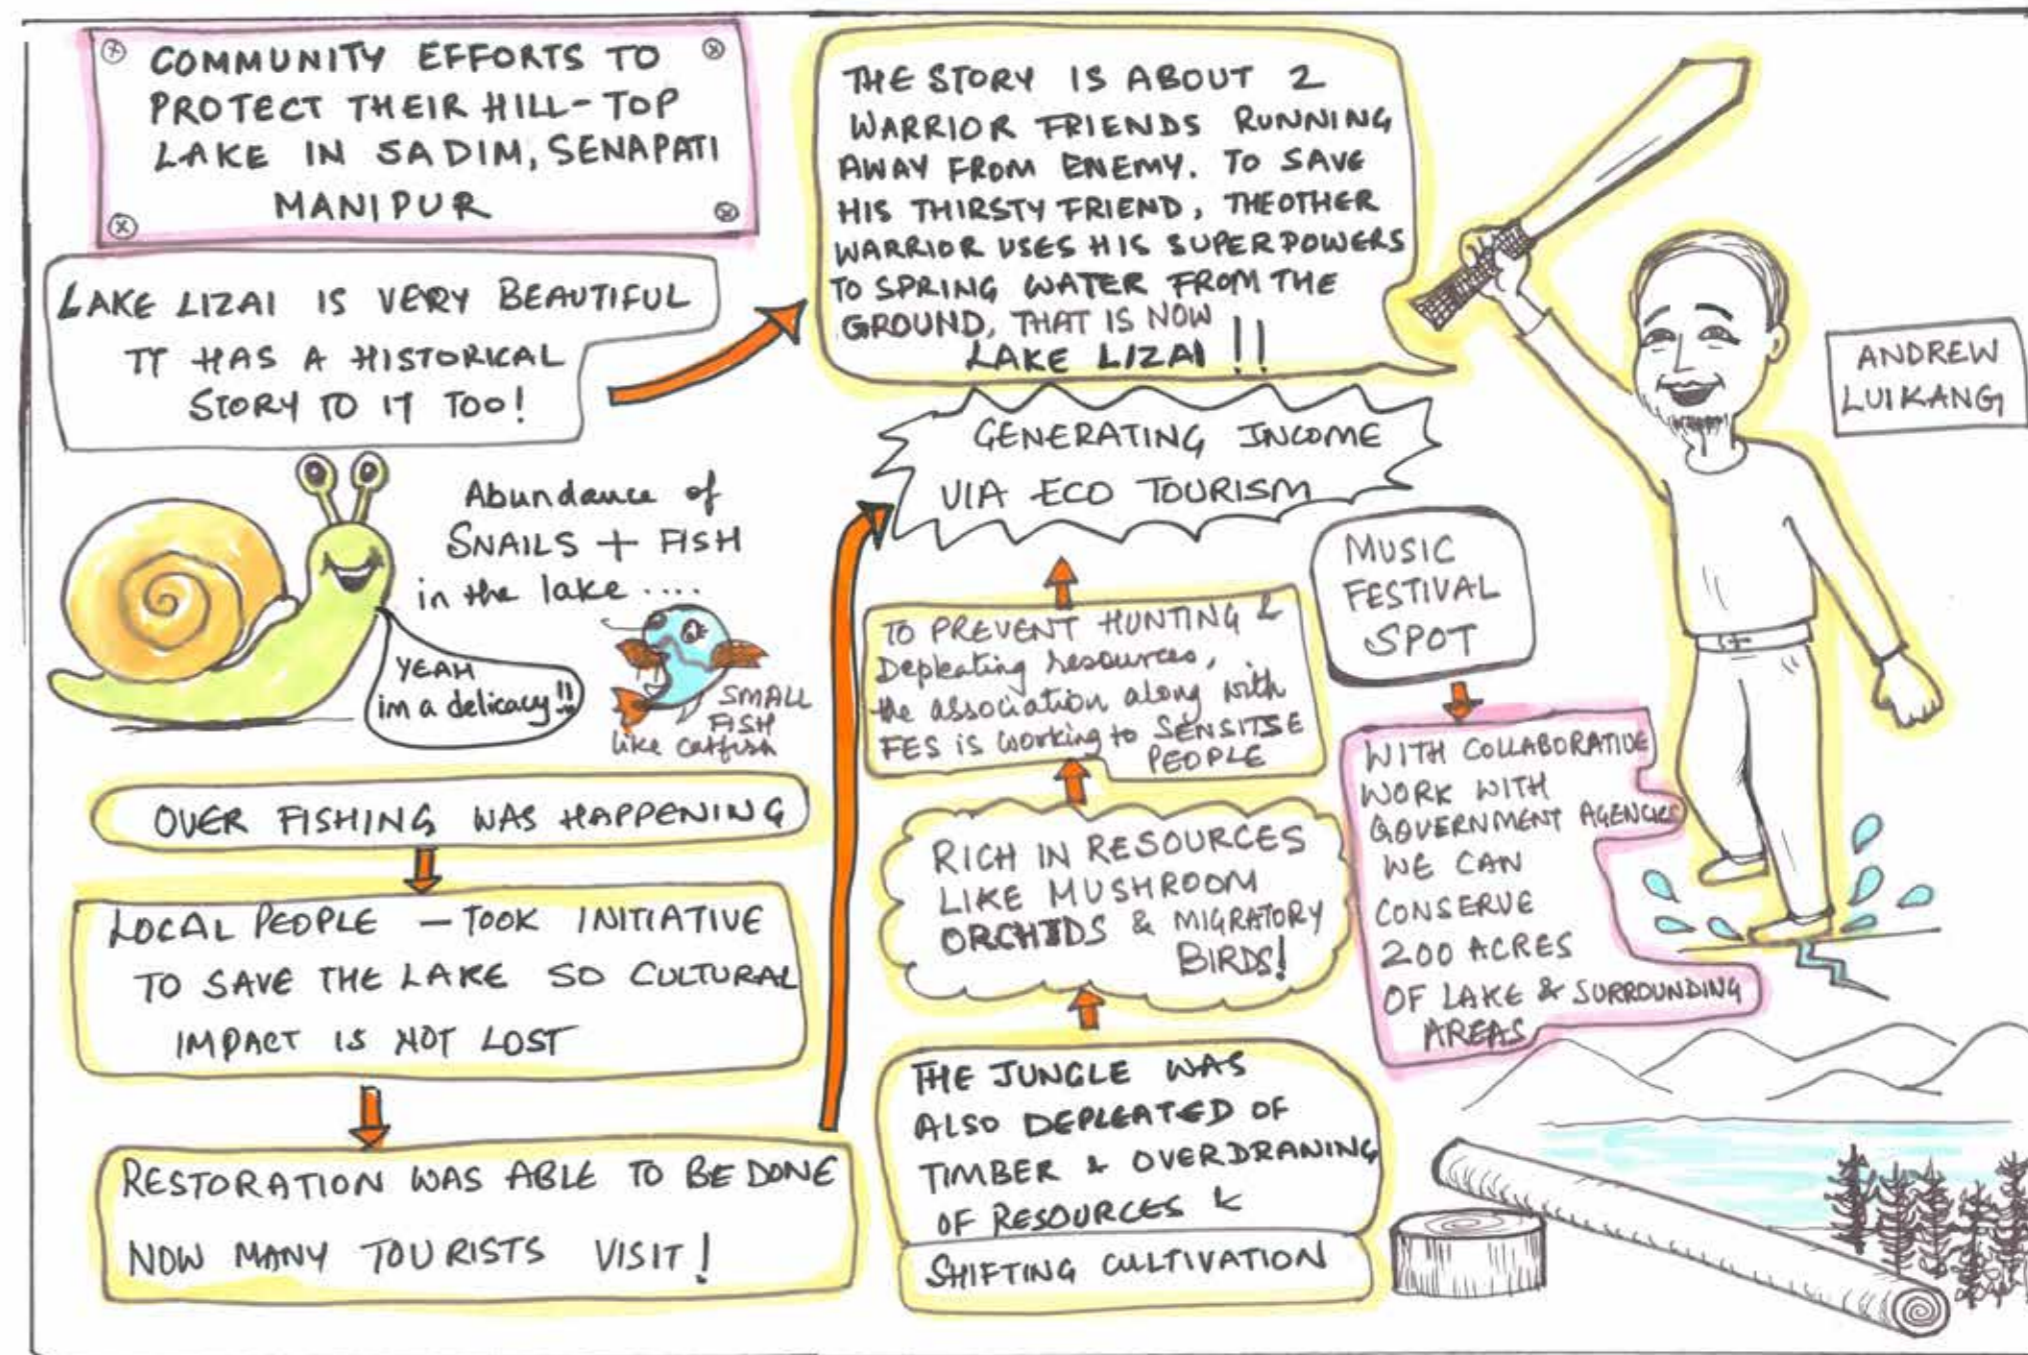 COMMUNITY EFFORTS TO
PROTECT THEIR HILL-TOP
LAKE IN SADIM, SENAPATI
MANIPUR
LAKE LIZAI IS VERY BEAUTIFUL
IT HAS A HISTORICAL
STORY TO IT TOO!
THE STORY IS ABOUT 2
WARRIOR FRIENDS RUNNING
AWAY FROM ENEMY. TO SAVE
HIS THIRSTY FRIEND, THEOTHER
WARRIOR USES HIS SUPERPOWERS
TO SPRING WATER FROM THE
GROUND, THAT IS NOW
LAKE LIZAI !!
ANDREW
LUIKANG
Abundance of
SNAILS + FISH
in the lake ....
YEAH
im a delicacy!!
SMALL
FISH
like catfish
OVER FISHING WAS HAPPENING
LOCAL PEOPLE - TOOK INITIATIVE
TO SAVE THE LAKE SO CULTURAL
IMPACT IS NOT LOST
RESTORATION WAS ABLE TO BE DONE
NOW MANY TOURISTS VISIT!
GENERATING INCOME
VIA ECO TOURISM
TO PREVENT HUNTING &
Depleating resources,
the association along with
FES is working to SENSITSE
PEOPLE
RICH IN RESOURCES
LIKE MUSHROOM
ORCHIDS & MIGRATORY
BIRDS!
THE JUNGLE WAS
ALSO DEPLEATED OF
TIMBER & OVERDRANING
OF RESOURCES &
SHIFTING CULTIVATION
MUSIC
FESTIVAL
SPOT
WITH COLLABORATIVE
WORK WITH
GOVERNMENT AGENCIES
WE CAN
CONSERVE
200 ACRES
OF LAKE & SURROUNDING
AREAS